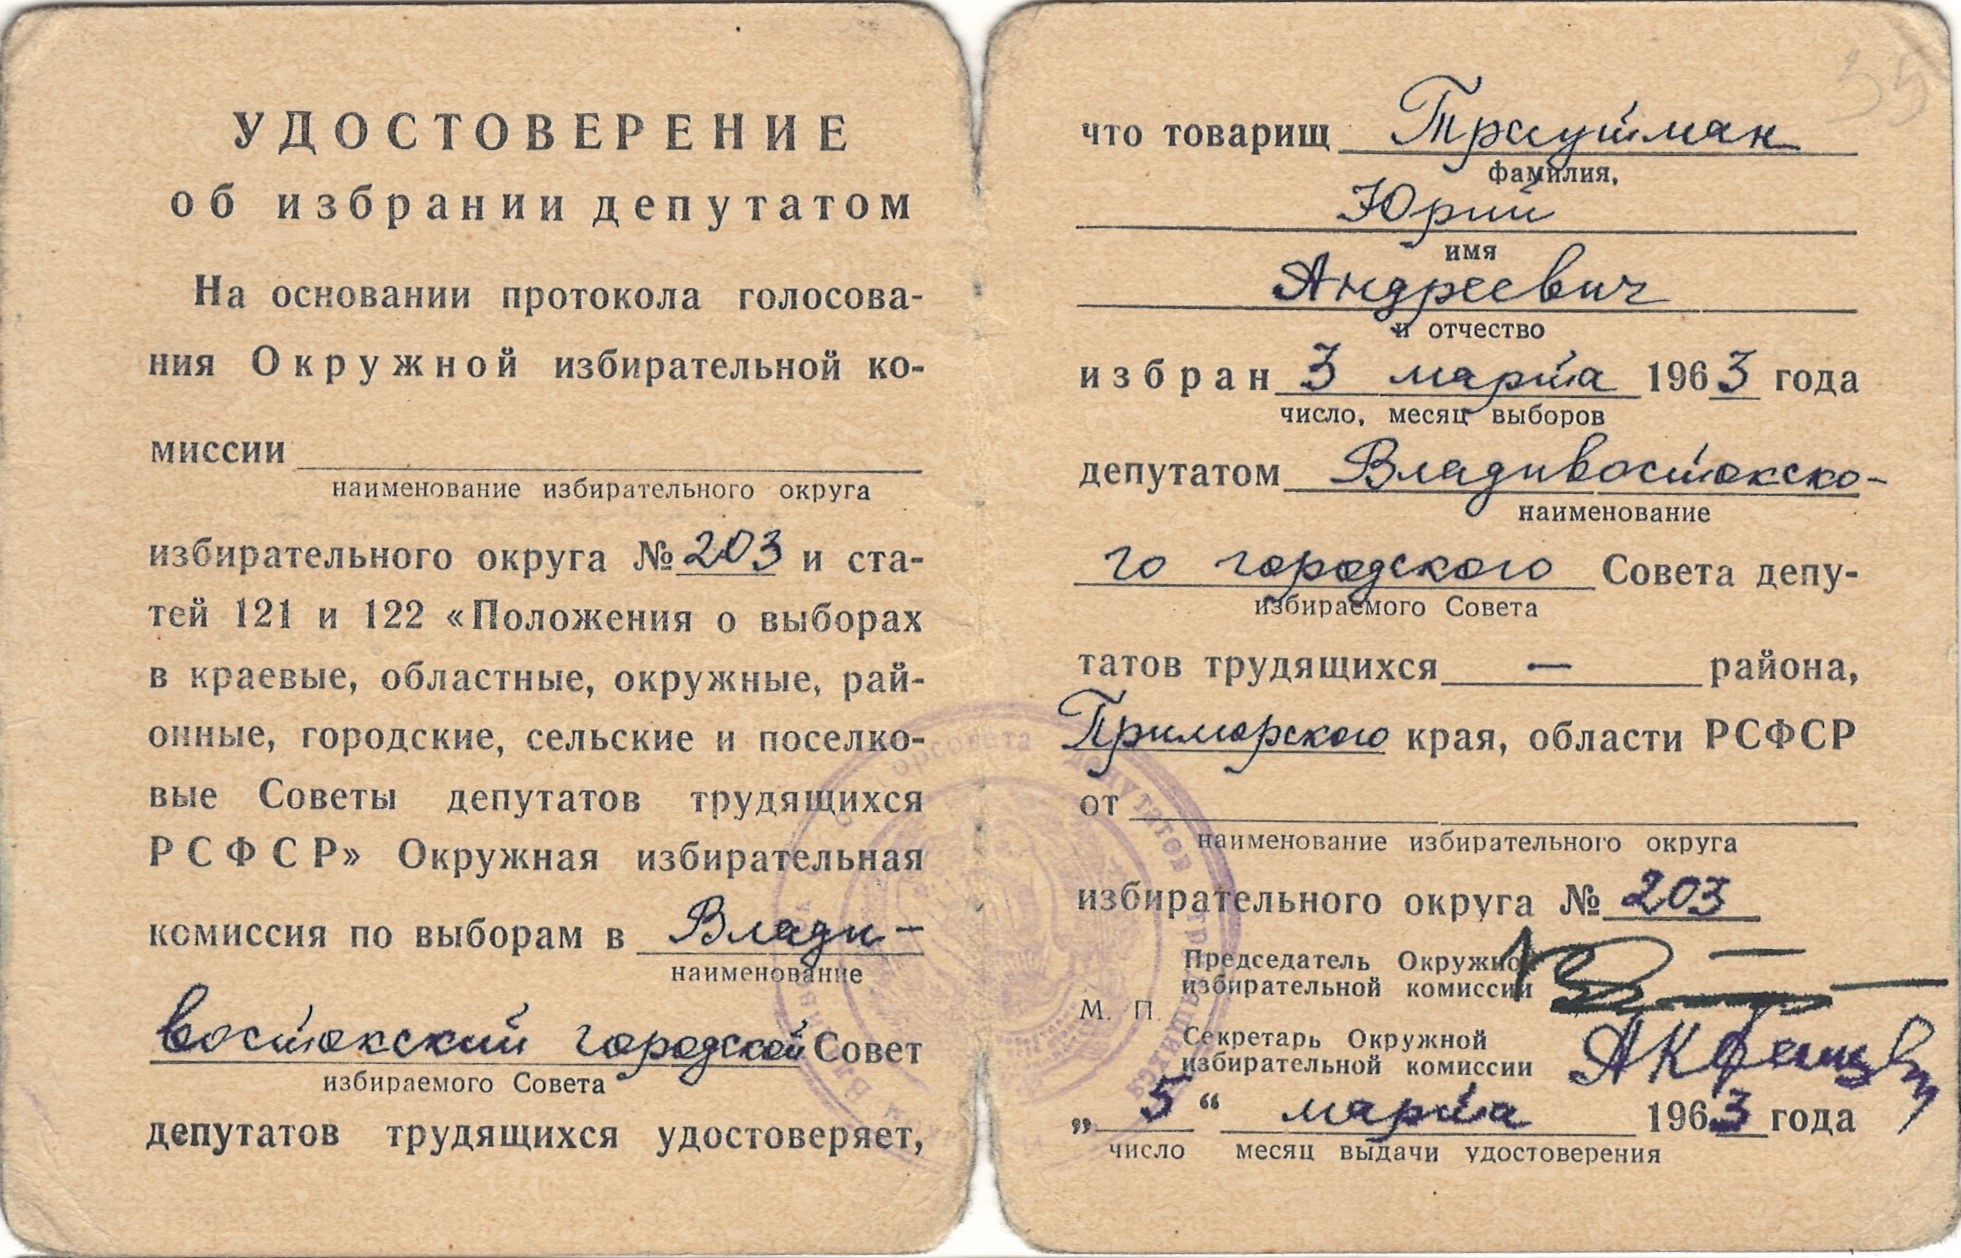 УДОСТОВЕРЕНИЕ
об избрании депутатом
На основании протокола голосова-
ния Окружной избирательной ко-
миссии
наименование избирательного округа
избирательного округа № 203 и ста-
тей 121 и 122 «Положения о выборах
в краевые, областные, окружные, рай-
онные, городские, сельские и поселко-
вые Советы депутатов трудящихся
РСФСР» Окружная избирательная
комиссия по выборам в Влади-
наименование
востокский городской Совет
избираемого Совета
депутатов трудящихся удостоверяет,
что товарищ Траутман
фамилия,
Юрий
имя
Андреевич
и отчество
избран 3 марта 1963 года
число, месяц выборов
депутатом Владивостокско-
наименование
го городского Совета депу-
избираемого Совета
татов трудящихся — района,
Приморского края, области РСФСР
от
наименование избирательного округа
избирательного округа № 203
Председатель Окружной
избирательной комиссии
М. П.
Секретарь Окружной
избирательной комиссии
„5“ марта 1963 года
число месяц выдачи удостоверения